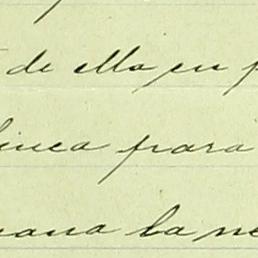 de ella en p
linea para
mana la ne